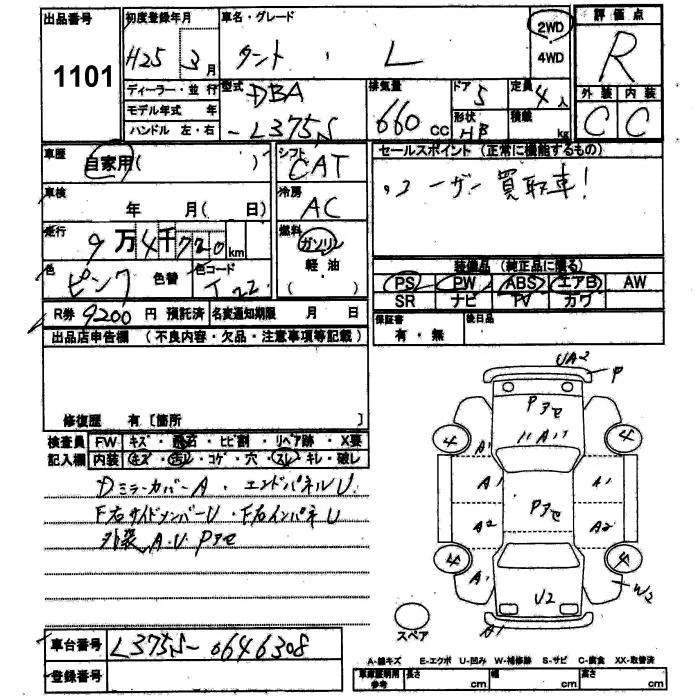 出品番号 1101
初度登録年月 H25 3月
車名・グレード タント・L
2WD・4WD
評価点 R
外装 C 内装 C
ディーラー・並行
モデル年式 年
ハンドル 左・右
型式 DBA-L375S
排気量 660cc
ドア 5 形状 HB
定員 4人 積載 kg
車歴 自家用( )
車検 年 月( 日)
走行 9万4千720km
色 ピンク 色替 色コード
シフト CAT
冷房 AC
燃料 ガソリン 軽・油 ( )
セールスポイント(正常に機能するもの)
ユーザー買取車!
装備品(純正品に限る)
PS PW ABS エアB AW
SR ナビ TV カワ
R券 9200円預託済 名変通知期限 月 日
保証書 有・無 後日品
出品店申告欄(不良内容・欠品・注意事項等記載)
修復歴 有[箇所 ]
検査員記入欄
FW キズ・飛石・ヒビ割・リペア跡・X要
内装 キズ・汚レ・コゲ・穴・スレ・キレ・破レ
Dミラーカバー A・エンドパネル U
F右サイドメンバー U・F右インパネ U
外装 A・U Pアセ
UA2 P
Pアセ
A1 A1
4 4
A1 A1
Pアセ
A2 A2
4 4
A1 U2 W2
A1
スペア
車台番号 L375S-0646308
登録番号
A-線キズ E-エクボ U-凹み W-補修跡 S-サビ C-腐食 XX-取替済
車庫証明用参考 長さ cm 幅 cm 高さ cm